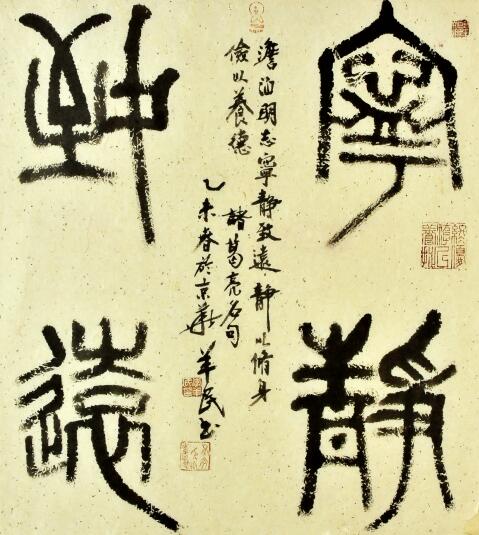 寧靜
澹泊明志寧靜致遠靜以脩身
儉以養德 諸葛亮名句
乙未春於京華 羊民书
致遠